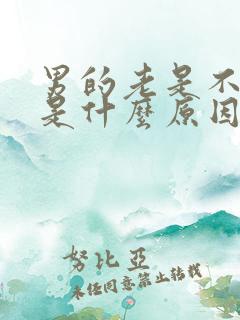 男的老是不
是什麼原因
努比亞
未经同意禁止转载